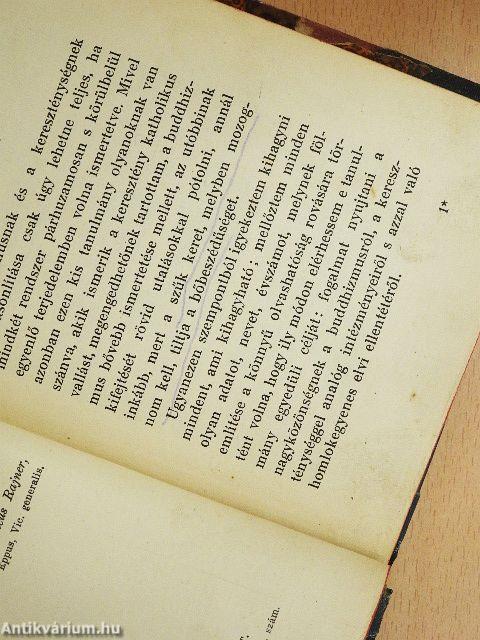 és a kereszténységnek
csak úgy lehetne teljes, ha
mindkét rendszer párhuzamosan s körülbelül
egyenlő terjedelemben volna ismertetve. Mivel
azonban ezen kis tanulmány olyanoknak van
szánva, akik ismerik a keresztény katholikus
vallást, megengedhetőnek tartottam, a buddhiz-
mus bővebb ismertetése mellett, az utóbbinak
kifejtését rövid utalásokkal pótolni, annál
inkább, mert a szük keret, melyben mozog-
nom kell, tiltja a bőbeszédűséget.
Ugyanezen szempontból igyekeztem kihagyni
mindent, ami kihagyható; mellőztem minden
olyan adatot, nevet, évszámot, melynek föl-
emlitése a könnyű olvashatóság rovására tör-
tént volna, hogy ily módon elérhessem e tanul-
mány egyedüli célját: fogalmat nyújtani a
nagyközönségnek a buddhizmusról, a keresz-
ténységgel analóg intézményeiről s azzal való
homlokegyenes elvi ellentétéről.
1*
Rajner,
Eppus, Vic. generalis.
szám.
Antikvárium.hu